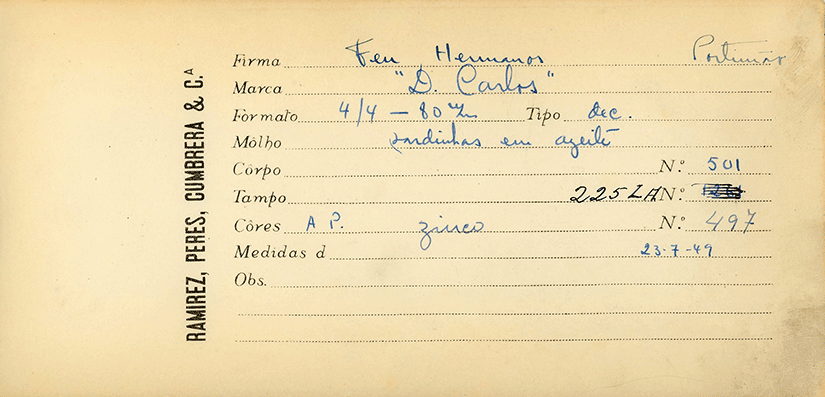 RAMIREZ, PERES, CUMBRERA & C.ª
Firma Feu Hermanos Portimão
Marca "D. Carlos"
Formato 4/4 — 80 m/m Tipo dec.
Môlho sardinhas em azeite
Côrpo N.º 501
Tampo 225 LA N.º
Côres A P. zinco N.º 497
Medidas d 23-7-49
Obs.